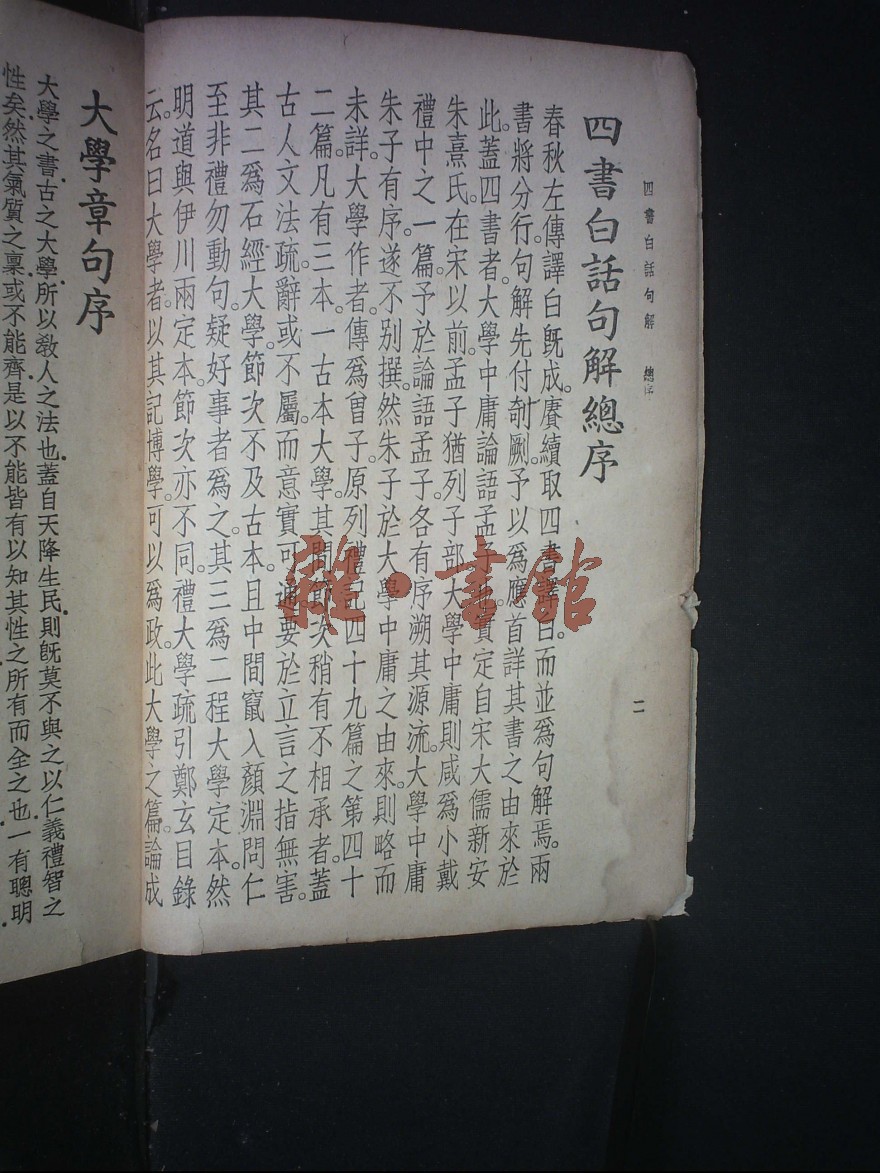 四書白話句解 總序
二
四書白話句解總序
春秋左傳譯白既成。賡續取四書譯白。而並爲句解焉。兩
書將分行。句解先付剞劂。予以爲應首詳其書之由來於
此。蓋四書者。大學中庸論語孟子也。實定自宋大儒新安
朱熹氏。在宋以前。孟子猶列子部。大學中庸。則咸爲小戴
禮中之一篇。予於論語孟子。各有序溯其源流。大學中庸
朱子有序。遂不別撰。然朱子於大學中庸之由來。則略而
未詳。大學作者。傳爲曾子。原列禮記四十九篇之第四十
二篇。凡有三本。一古本大學。其間節次稍有不相承者。蓋
古人文法疏。辭或不屬。而意實可通。要於立言之指無害。
其二爲石經大學。節次不及古本。且中間竄入顏淵問仁
至非禮勿動句。疑好事者爲之。其三爲二程大學定本。然
明道與伊川兩定本。節次亦不同。禮大學疏引鄭玄目錄
云。名曰大學者。以其記博學。可以爲政。此大學之篇。論成
大學章句序
大學之書古之大學所以敎人之法也蓋自天降生民則旣莫不與之以仁義禮智之
性矣然其氣質之稟或不能齊是以不能皆有以知其性之所有而全之也一有聰明
雜·書館